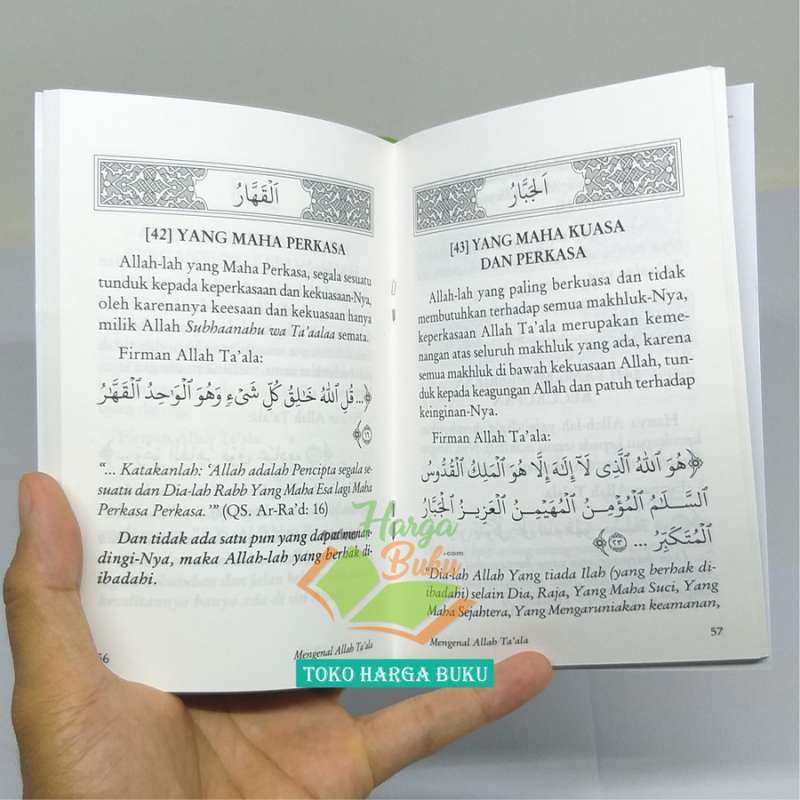 اَلْقَهَّارُ
[42] YANG MAHA PERKASA
Allah-lah yang Maha Perkasa, segala sesuatu
tunduk kepada keperkasaan dan kekuasaan-Nya,
oleh karenanya keesaan dan kekuasaan hanya
milik Allah Subhaanahu wa Ta'aalaa semata.
Firman Allah Ta'ala:
﴿... قُلِ ٱللَّهُ خَـٰلِقُ كُلِّ شَىْءٍ وَهُوَ ٱلْوَٰحِدُ ٱلْقَهَّـٰرُ
﴿١٦﴾
"... Katakanlah: 'Allah adalah Pencipta segala se-
suatu dan Dia-lah Rabb Yang Maha Esa lagi Maha
Perkasa Perkasa.'" (QS. Ar-Ra'd: 16)
Dan tidak ada satu pun yang dapat menan-
dingi-Nya, maka Allah-lah yang berhak di-
ibadahi.
56
Mengenal Allah Ta'ala
اَلْجَبَّارُ
[43] YANG MAHA KUASA
DAN PERKASA
Allah-lah yang paling berkuasa dan tidak
membutuhkan terhadap semua makhluk-Nya,
keperkasaan Allah Ta'ala merupakan keme-
nangan atas seluruh makhluk yang ada, karena
semua makhluk di bawah kekuasaan Allah, tun-
duk kepada keagungan Allah dan patuh terhadap
keinginan-Nya.
Firman Allah Ta'ala:
﴿هُوَ ٱللَّهُ ٱلَّذِى لَآ إِلَـٰهَ إِلَّا هُوَ ٱلْمَلِكُ ٱلْقُدُّوسُ
ٱلسَّلَـٰمُ ٱلْمُؤْمِنُ ٱلْمُهَيْمِنُ ٱلْعَزِيزُ ٱلْجَبَّارُ
ٱلْمُتَكَبِّرُ ... ﴿٢٣﴾
"Dia-lah Allah Yang tiada Ilah (yang berhak di-
ibadahi) selain Dia, Raja, Yang Maha Suci, Yang
Maha Sejahtera, Yang Mengaruniakan keamanan,
57
Mengenal Allah Ta'ala
Harga
Buku
.com
TOKO HARGA BUKU